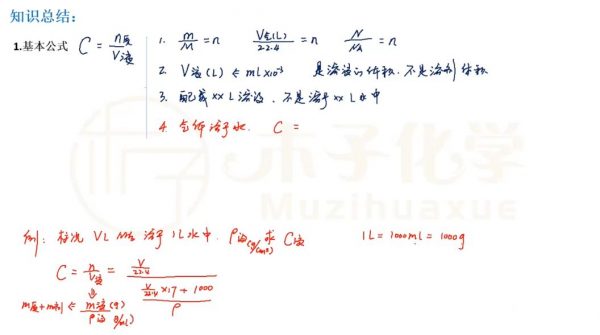 知识总结：
1.基本公式 C = n质/V液
1. m/M = n V气(L)/22.4 = n N/NA = n
2. V液(L) ← ml×10⁻³ 是溶液的体积，不是溶剂体积
3. 配成 xx L溶液，不是溶于 xx L水中
4. 气体溶于水. C =
木子化学
Muzihuaxue
例：标况 VL NH3 溶于 1L水中. ρ液(g/cm³) 求 C液
1L = 1000ml = 1000g
C = n/V液 = (V/22.4)/((V/22.4 ×17 + 1000)/ρ)
m质+m剂 ← m液(g)/ρ液 g/ml